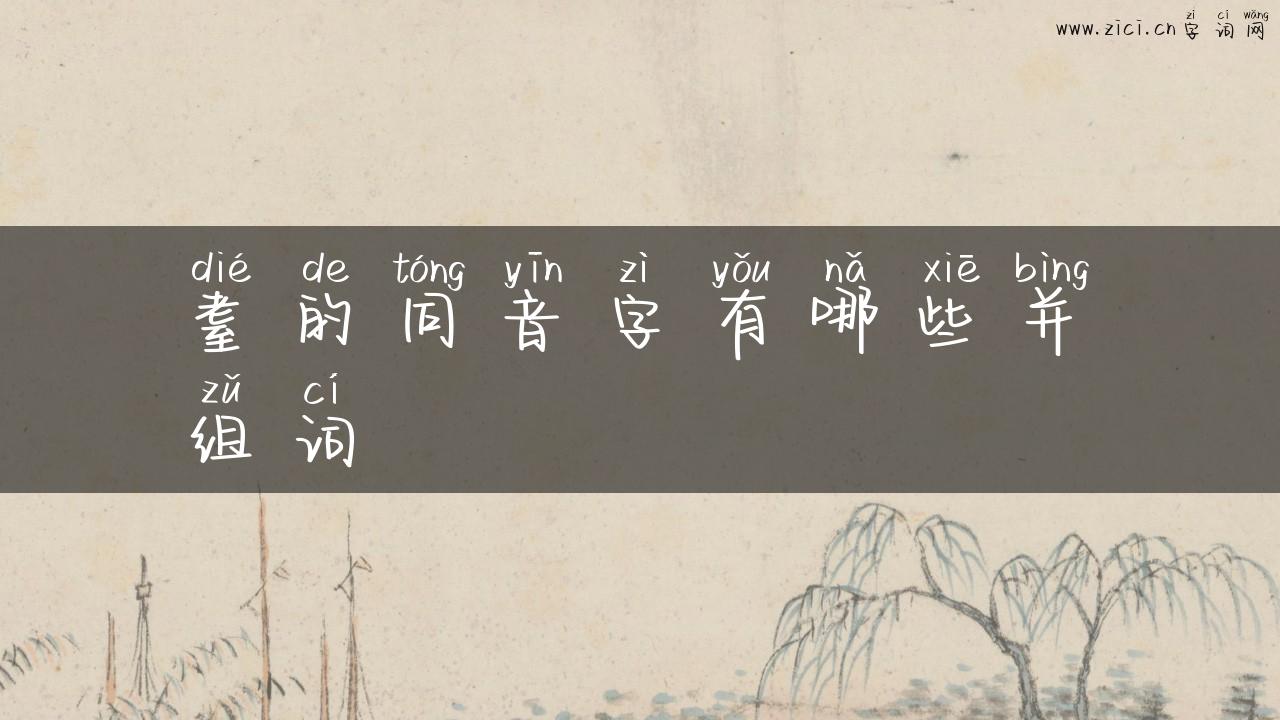 zì cí wǎng
www.zici.cn 字 词 网
dié de tóng yīn zì yǒu nǎ xiē bìng
耋 的 同 音 字 有 哪 些 并
zǔ cí
组 词